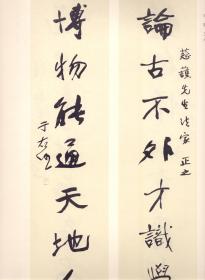 蘇鎮先生法家 正之
論古不外才識學
博物能通天地人
于右任